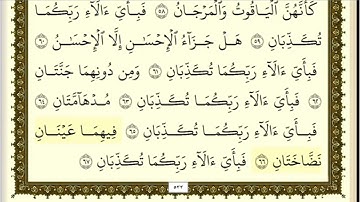 كَأَنَّهُنَّ ٱلْيَاقُوتُ وَٱلْمَرْجَانُ ٥٨ فَبِأَيِّ ءَالَآءِ رَبِّكُمَا
تُكَذِّبَانِ ٥٩ هَلْ جَزَآءُ ٱلْإِحْسَٰنِ إِلَّا ٱلْإِحْسَٰنُ ٦٠
فَبِأَيِّ ءَالَآءِ رَبِّكُمَا تُكَذِّبَانِ ٦١ وَمِن دُونِهِمَا جَنَّتَانِ
٦٢ فَبِأَيِّ ءَالَآءِ رَبِّكُمَا تُكَذِّبَانِ ٦٣ مُدْهَآمَّتَانِ ٦٤
فَبِأَيِّ ءَالَآءِ رَبِّكُمَا تُكَذِّبَانِ ٦٥ فِيهِمَا عَيْنَانِ
نَضَّاخَتَانِ ٦٦ فَبِأَيِّ ءَالَآءِ رَبِّكُمَا تُكَذِّبَانِ ٦٧
٥٣٣